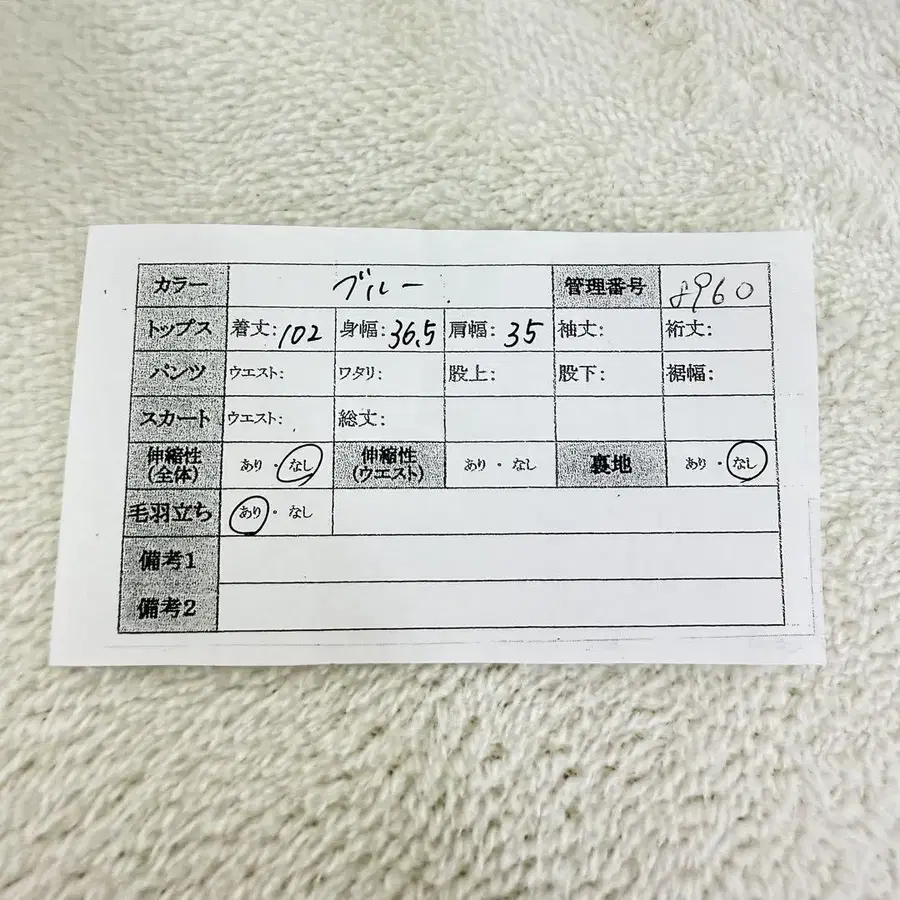 カラー ブルー 管理番号 8960
トップス 着丈:102 身幅:36.5 肩幅:35 袖丈: 裄丈:
パンツ ウエスト: ワタリ: 股上: 股下: 裾幅:
スカート ウエスト: 総丈:
伸縮性 (全体) あり・なし 伸縮性 (ウエスト) あり・なし 裏地 あり・なし
毛羽立ち あり・なし
備考1
備考2